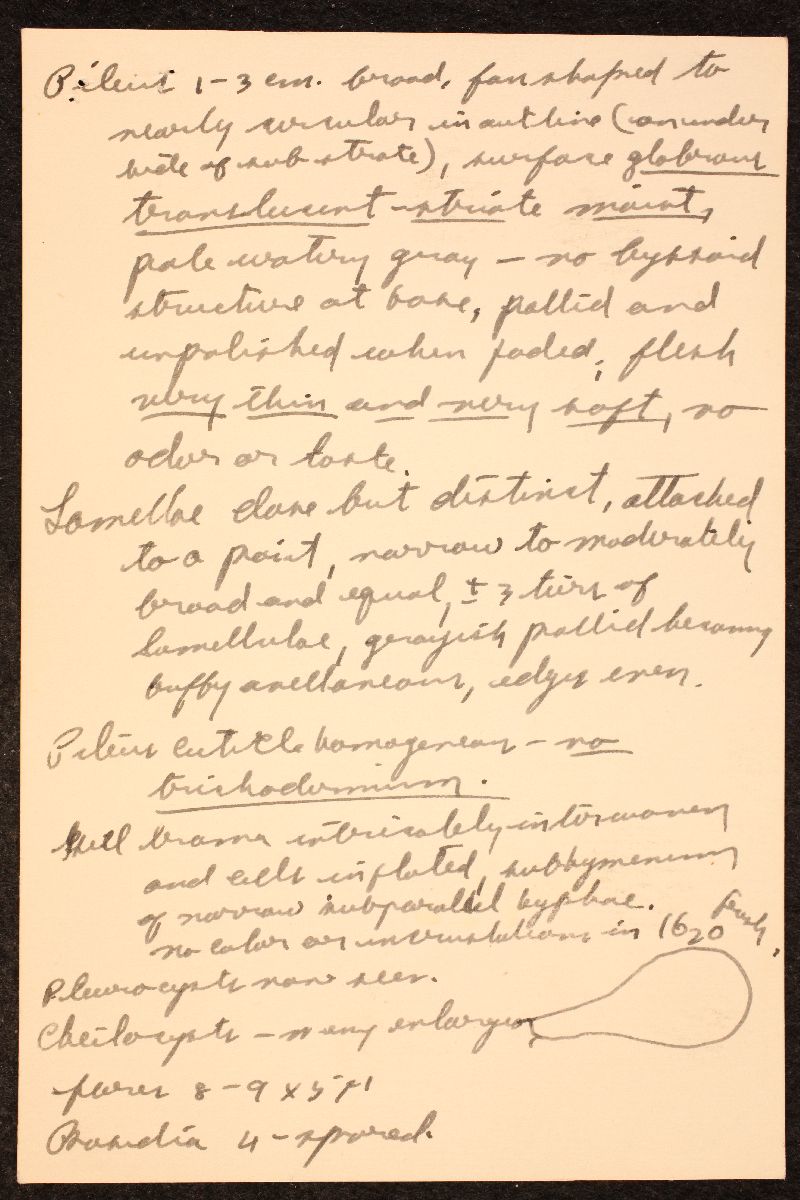 Pileus 1-3 cm. broad, fan shaped to
nearly circular in outline (on under
side of substrate), surface glabrous
translucent-striate moist,
pale watery gray — no byssoid
structure at base, pallid and
unpolished when faded; flesh
very thin and very soft, no
odor or taste.
Lamellae close but distinct, attached
to a point, narrow to moderately
broad and equal, ± 3 tiers of
lamellulae, grayish pallid becoming
buffy avellaneous, edges even.
Pileus cuticle homogeneous — no
trichodermium.
Gill trama intricately interwoven
and cells inflated, subhymenium
of narrow subparallel hyphae.
no color or incrustations in H2O fresh.
Pleurocysts none seen.
Cheilocysts — many enlarged
spores 8-9 x 5 μ
Basidia 4-spored.